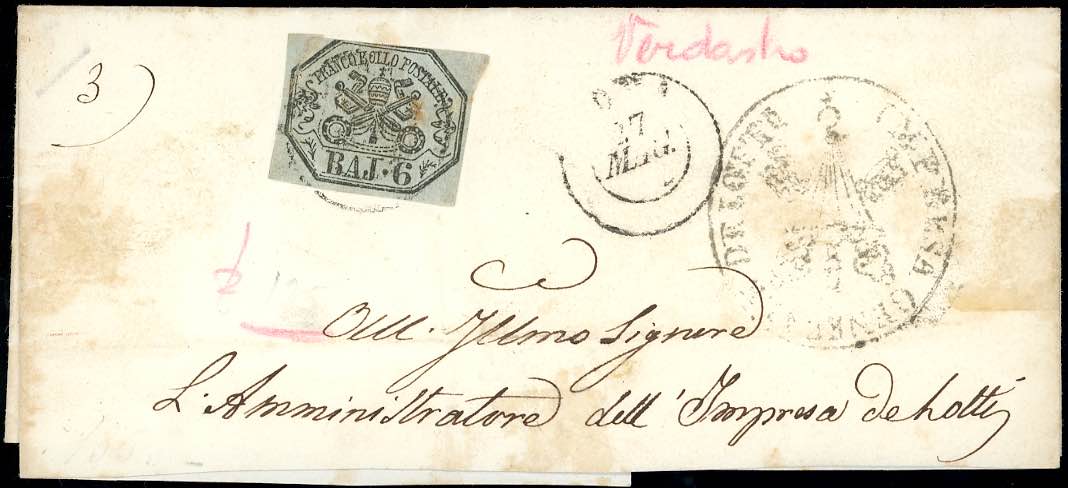 Verdastro
3)
FRANCO BOLLO POSTALE
BAJ. 6
17
MAG.
IMPRESA GENER
DE LOTTI
All. Illmo Signore
L'Amministratore dell'Impresa de Lotti